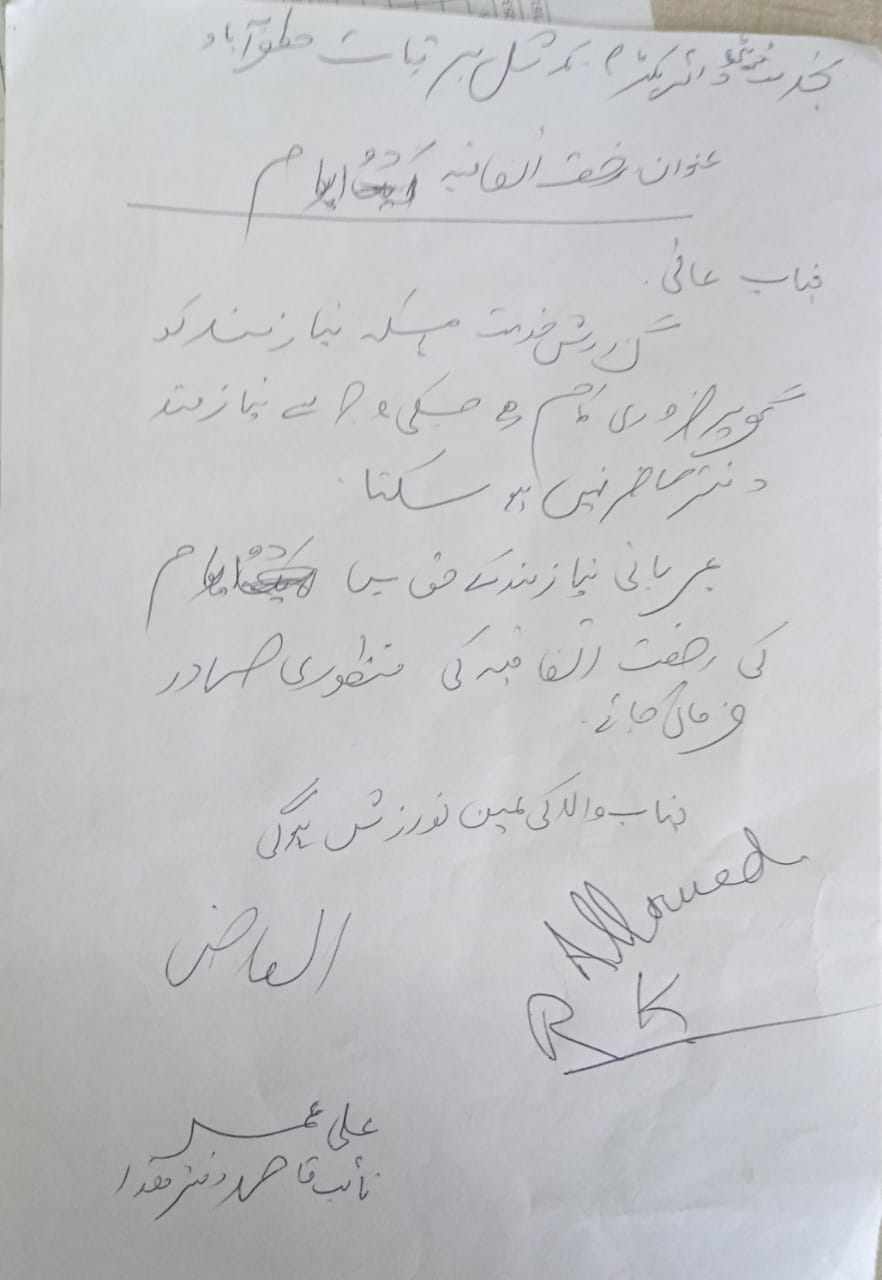 بخدمت ڈپٹی ڈائریکٹر کمرشل ہیر
عنوان رخصت اتفاقیہ دو ایام
جناب عالی
گزارش خدمت ہیکہ نیازمند کو
گھر پر ضروری کام ہے جسکی وجہ سے نیازمند
دفتر حاضر نہیں ہو سکتا۔
مہربانی نیازمند کے حق میں دو ایام
کی رخصت اتفاقیہ کی منظوری صادر
فرمائی جائے۔
جناب والا کی عین نوازش ہوگی
Allowed
RK
العارض
علی عمر
نائب قاصد دفتر ھذا